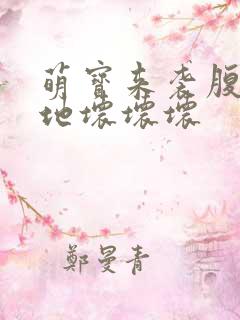 萌寶来袭腹
地壞壞壞
鄭曼青